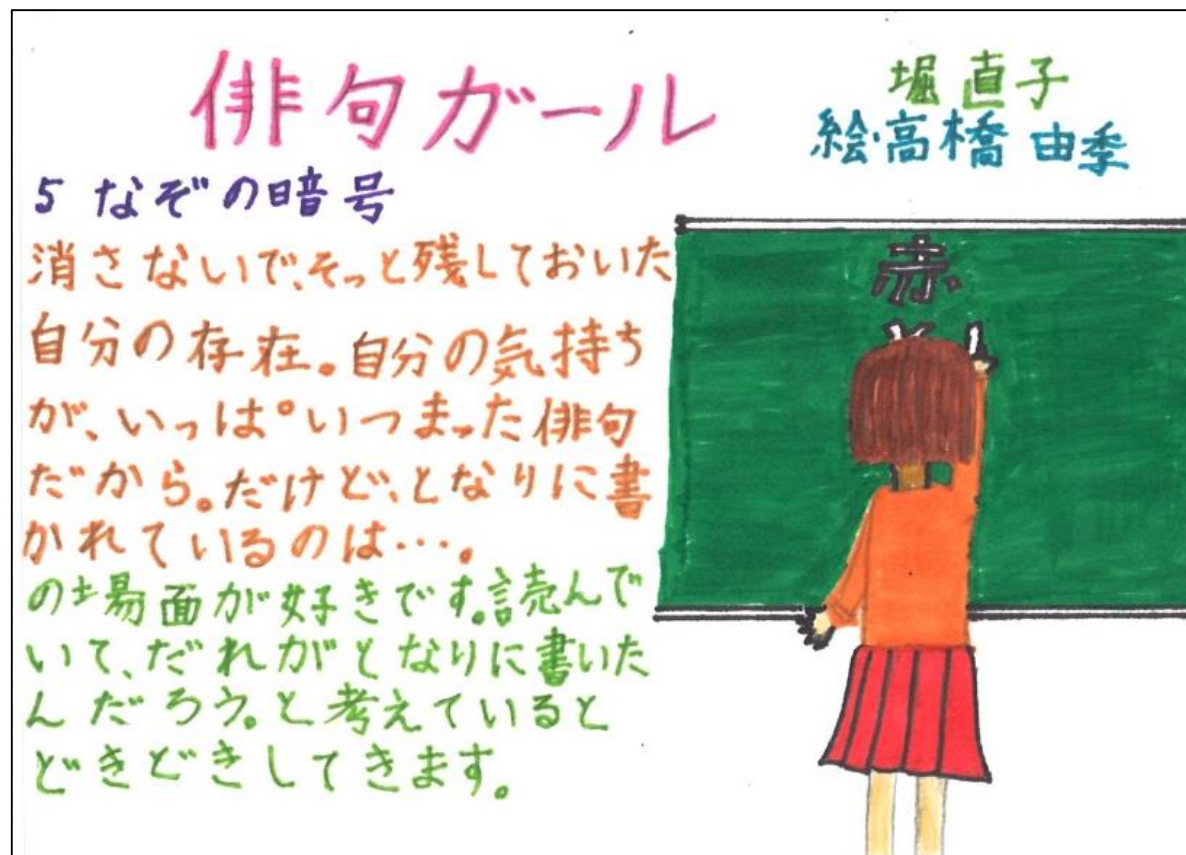 俳句ガール
堀直子
絵・高橋由季
5 なぞの暗号
消さないで、そっと残しておいた
自分の存在。自分の気持ち
が、いっぱいつまった俳句
だから。だけど、となりに書
かれているのは…。
の場面が好きです。読んで
いて、だれがとなりに書いた
んだろう。と考えていると
どきどきしてきます。
赤